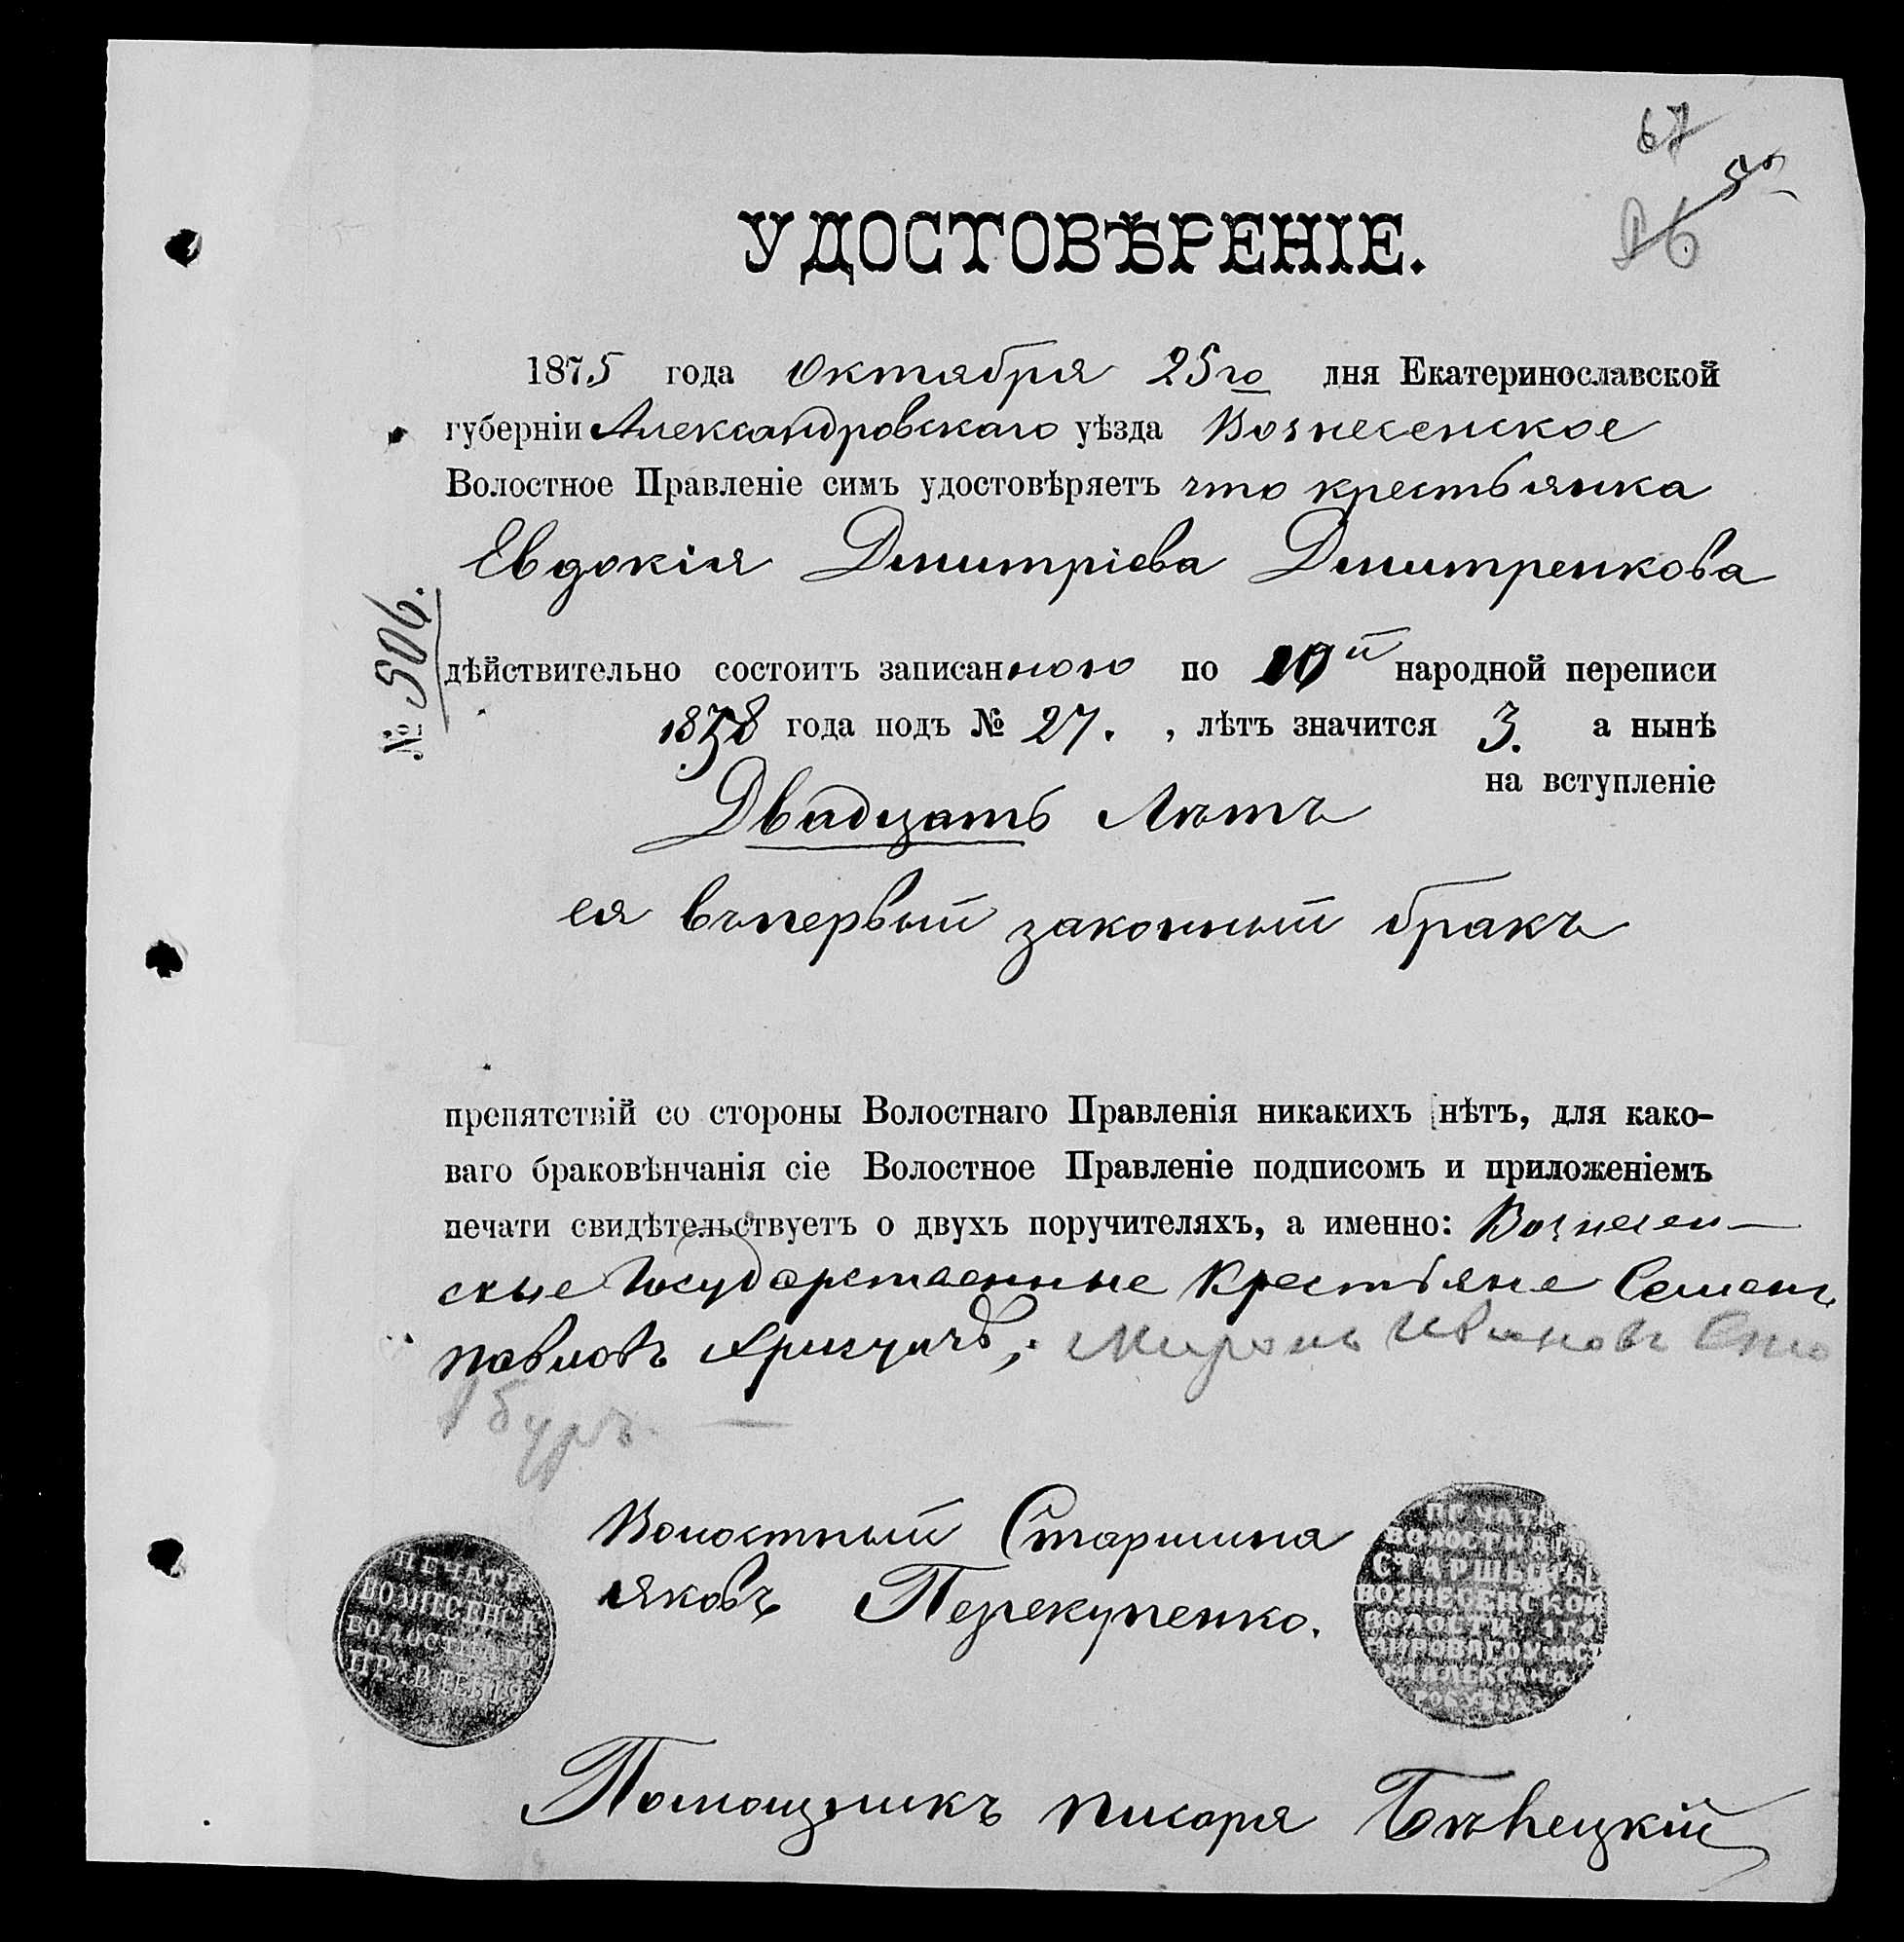 67
УДОСТОВѢРЕНІЕ.
1875 года Октября 25го дня Екатеринославской
губерніи Александровскаго уѣзда Вознесенское
Волостное Правленіе симъ удостовѣряетъ что крестьянка
Евдокія Дмитріева Дмитренкова
№ 506.
дѣйствительно состоитъ записанною по 10й народной переписи
1858 года подъ № 27. , лѣтъ значится 3. а нынѣ
на вступленіе
Двадцать Лѣтъ
ея въ первый законный бракъ
препятствій со стороны Волостнаго Правленія никакихъ нѣтъ, для како-
ваго браковѣнчанія сіе Волостное Правленіе подписомъ и приложеніемъ
печати свидѣтельствуетъ о двухъ поручителяхъ, а именно: Вознесен-
скые Государственные Крестьяне Семенъ
Павловъ Миронъ Ивановъ
Волостный Старшина
Яковъ Перекупенко.
ПЕЧАТЬ
ВОЗНЕСЕНСК
ВОЛОСТНАГО
ПРАВЛЕНІЯ
ПЕЧАТЬ
ВОЛОСТНАГО
СТАРШЫНЫ
ВОЗНЕСЕНСКОЙ
ВОЛОСТИ 1ГО
МИРОВАГО УЧАСТ
КА АЛЕКСАНД
РОС УѢЗДА
Помощникъ писаря